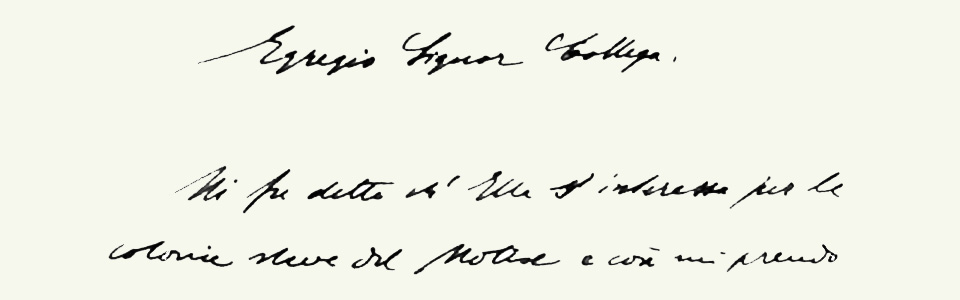 Egregio Signor Collega.
Mi fu detto ch' Ella s' interessa per le
colonie slave del Molise e così mi prendo